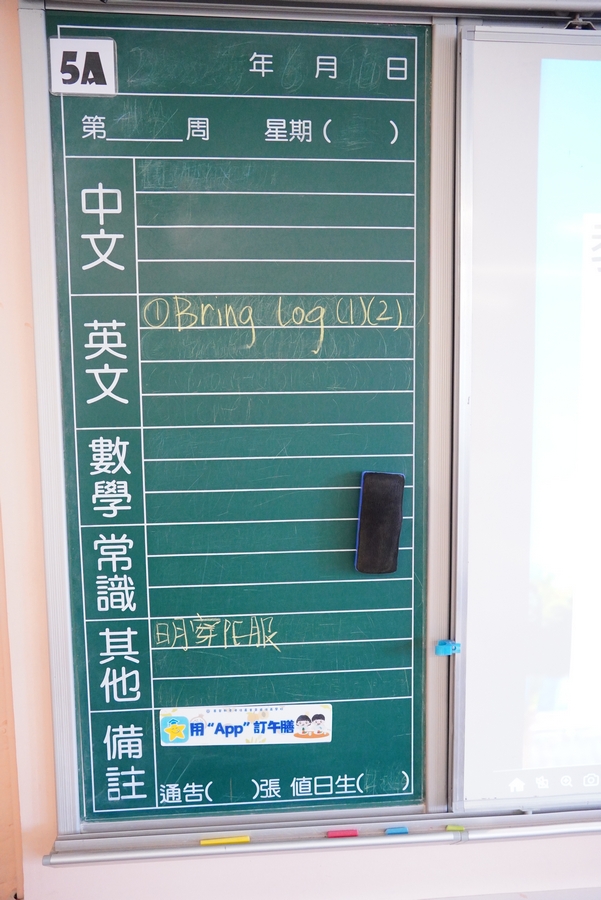 5A
年 月 日
第______周 星期( )
中文
英文
①Bring log (1)(2)
數學
常識
其他
明穿PE服
備註
用“App”訂午膳
通告( )張 值日生( )